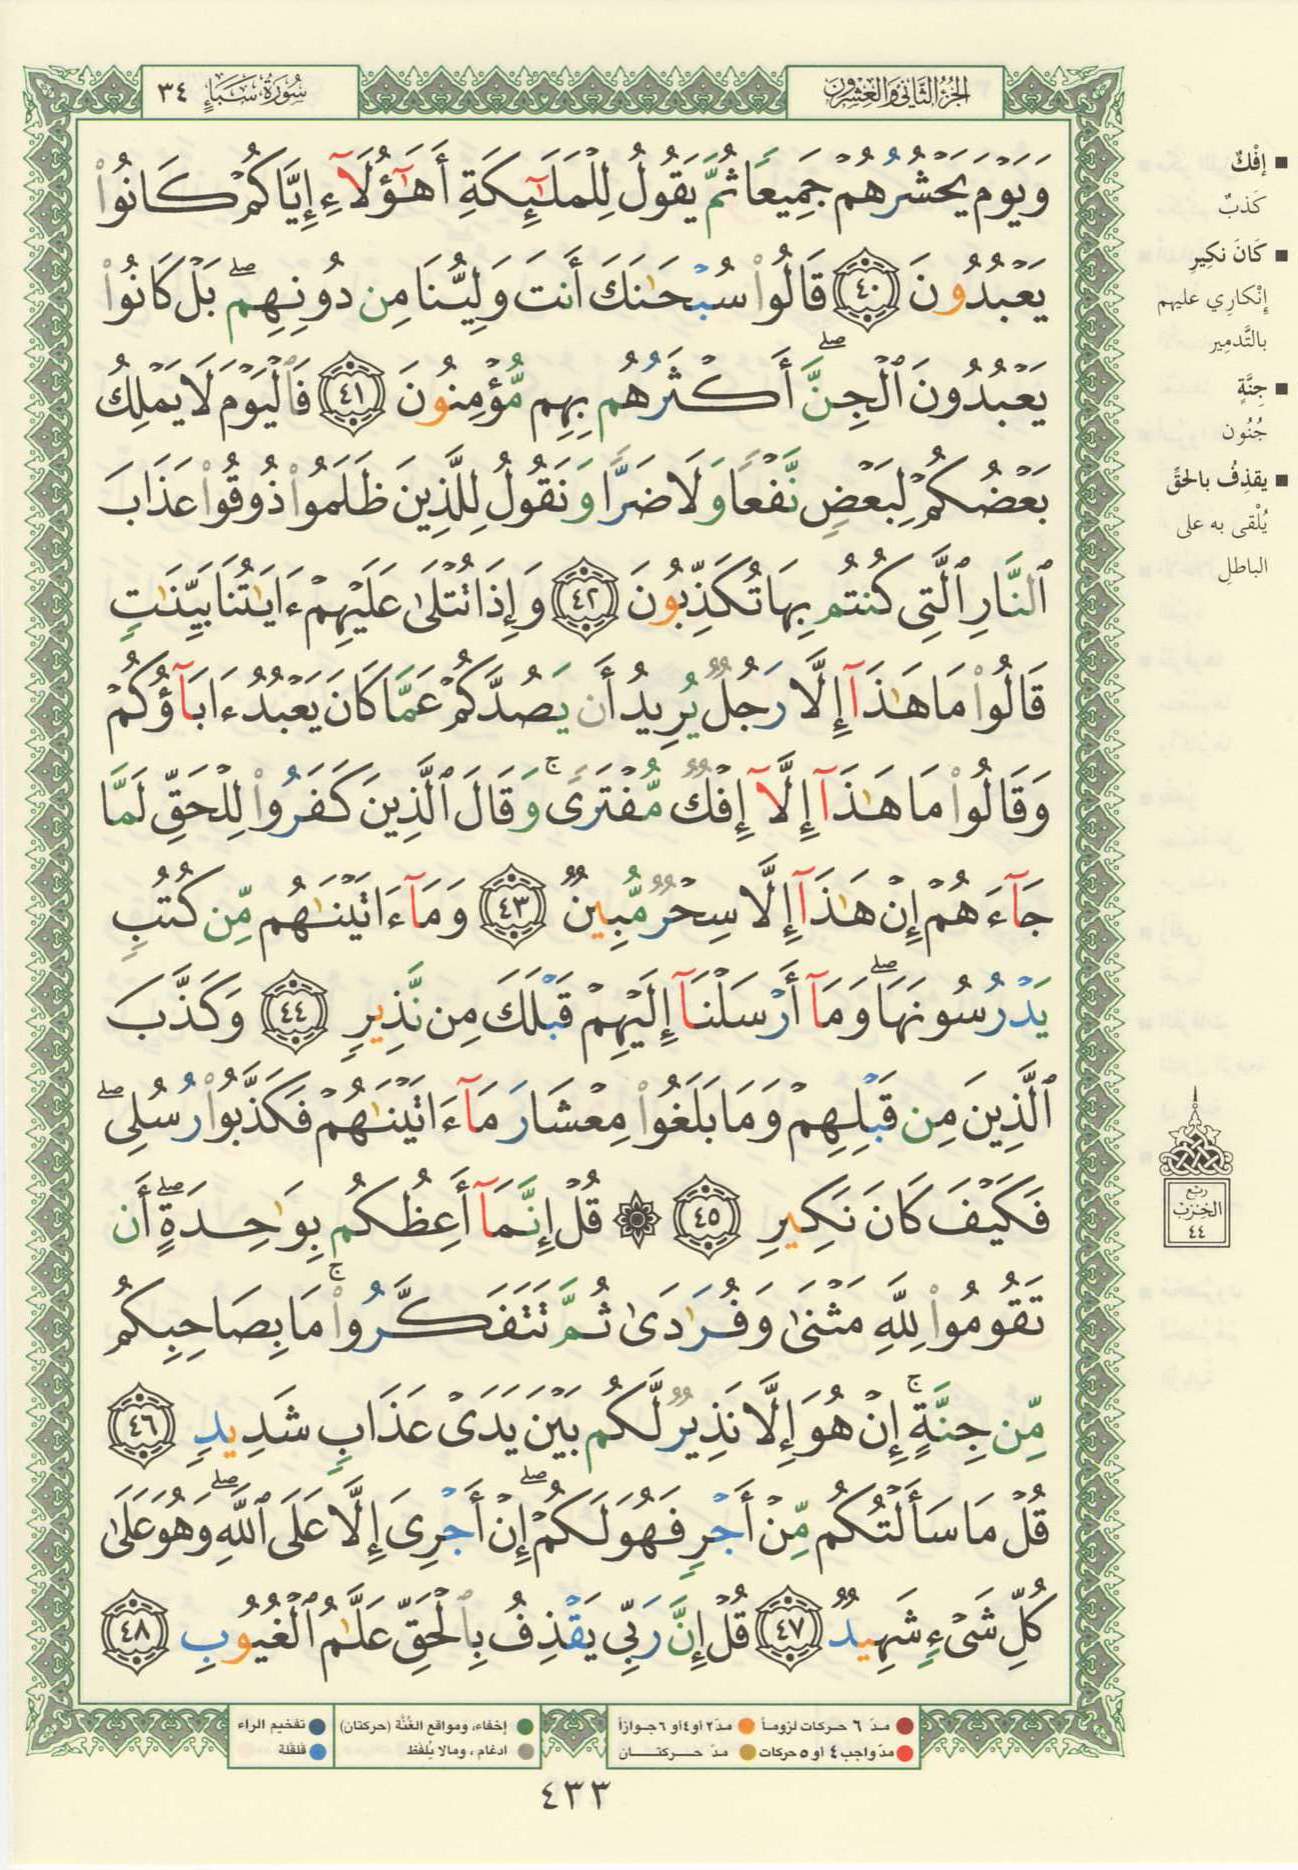 الجزء الثاني والعشرون
سورة سبإ ٣٤
وَيَوْمَ يَحْشُرُهُمْ جَمِيعًا ثُمَّ يَقُولُ لِلْمَلَٰٓئِكَةِ أَهَٰٓؤُلَآءِ إِيَّاكُمْ كَانُوا۟
يَعْبُدُونَ ٤٠ قَالُوا۟ سُبْحَٰنَكَ أَنتَ وَلِيُّنَا مِن دُونِهِم ۖ بَلْ كَانُوا۟
يَعْبُدُونَ ٱلْجِنَّ ۖ أَكْثَرُهُم بِهِم مُّؤْمِنُونَ ٤١ فَٱلْيَوْمَ لَا يَمْلِكُ
بَعْضُكُمْ لِبَعْضٍ نَّفْعًا وَلَا ضَرًّا وَنَقُولُ لِلَّذِينَ ظَلَمُوا۟ ذُوقُوا۟ عَذَابَ
ٱلنَّارِ ٱلَّتِى كُنتُم بِهَا تُكَذِّبُونَ ٤٢ وَإِذَا تُتْلَىٰ عَلَيْهِمْ ءَايَٰتُنَا بَيِّنَٰتٍ
قَالُوا۟ مَا هَٰذَآ إِلَّا رَجُلٌ يُرِيدُ أَن يَصُدَّكُمْ عَمَّا كَانَ يَعْبُدُ ءَابَآؤُكُمْ
وَقَالُوا۟ مَا هَٰذَآ إِلَّآ إِفْكٌ مُّفْتَرًى ۚ وَقَالَ ٱلَّذِينَ كَفَرُوا۟ لِلْحَقِّ لَمَّا
جَآءَهُمْ إِنْ هَٰذَآ إِلَّا سِحْرٌ مُّبِينٌ ٤٣ وَمَآ ءَاتَيْنَٰهُم مِّن كُتُبٍ
يَدْرُسُونَهَا ۖ وَمَآ أَرْسَلْنَآ إِلَيْهِمْ قَبْلَكَ مِن نَّذِيرٍ ٤٤ وَكَذَّبَ
ٱلَّذِينَ مِن قَبْلِهِمْ وَمَا بَلَغُوا۟ مِعْشَارَ مَآ ءَاتَيْنَٰهُمْ فَكَذَّبُوا۟ رُسُلِى ۖ
فَكَيْفَ كَانَ نَكِيرِ ٤٥ ۞ قُلْ إِنَّمَآ أَعِظُكُم بِوَٰحِدَةٍ ۖ أَن
تَقُومُوا۟ لِلَّهِ مَثْنَىٰ وَفُرَٰدَىٰ ثُمَّ تَتَفَكَّرُوا۟ ۚ مَا بِصَاحِبِكُم
مِّن جِنَّةٍ ۚ إِنْ هُوَ إِلَّا نَذِيرٌ لَّكُم بَيْنَ يَدَىْ عَذَابٍ شَدِيدٍ ٤٦
قُلْ مَا سَأَلْتُكُم مِّنْ أَجْرٍ فَهُوَ لَكُمْ ۖ إِنْ أَجْرِىَ إِلَّا عَلَى ٱللَّهِ ۖ وَهُوَ عَلَىٰ
كُلِّ شَىْءٍ شَهِيدٌ ٤٧ قُلْ إِنَّ رَبِّى يَقْذِفُ بِٱلْحَقِّ عَلَّٰمُ ٱلْغُيُوبِ ٤٨
إفْكٌ
كَذبٌ
كَانَ نكِيرِ
إنْكارِي عليهم
بالتَّدمِير
جِنَّةٍ
جُنُون
يقذِفُ بالحقِّ
يُلْقى به على
الباطلِ
ربع
الحزب
٤٤
مدّ ٦ حركات لزوماً مدّ ٢ أو ٤ أو ٦ جوازاً
مدّ واجب ٤ أو ٥ حركات مدّ حركتان
إخفاء، ومواقع الغُنَّة (حركتان) تفخيم الراء
ادغام، ومالا يُلفَظ قلقلة
٤٣٣